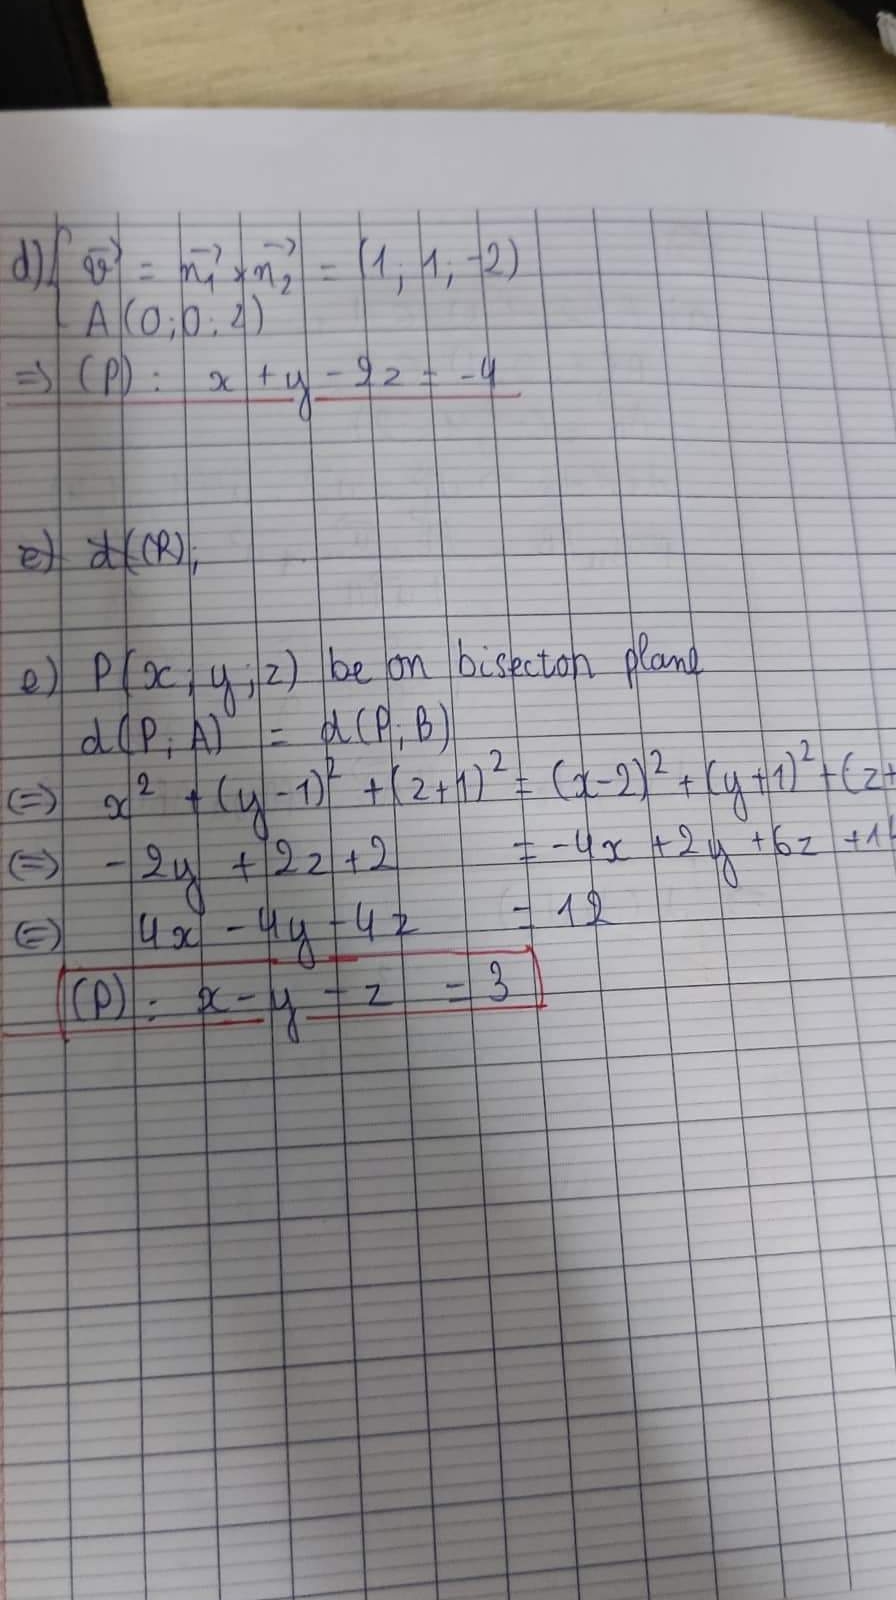 d) { v⃗ = n₁⃗ × n₂⃗ = (1; 1; -2)
A(0; 0; 2)
=> (P): x + y - 2z = -4
e) d((R);
e) P(x; y; z) be on bisector plane
d(P; A) = d(P; B)
(=) x² + (y-1)² + (z+1)² = (x-2)² + (y+1)² + (z+
(=) -2y + 2z + 2 = -4x + 2y + 6z + 14
(=) 4x - 4y - 4z = 12
(P): x - y - z = 3